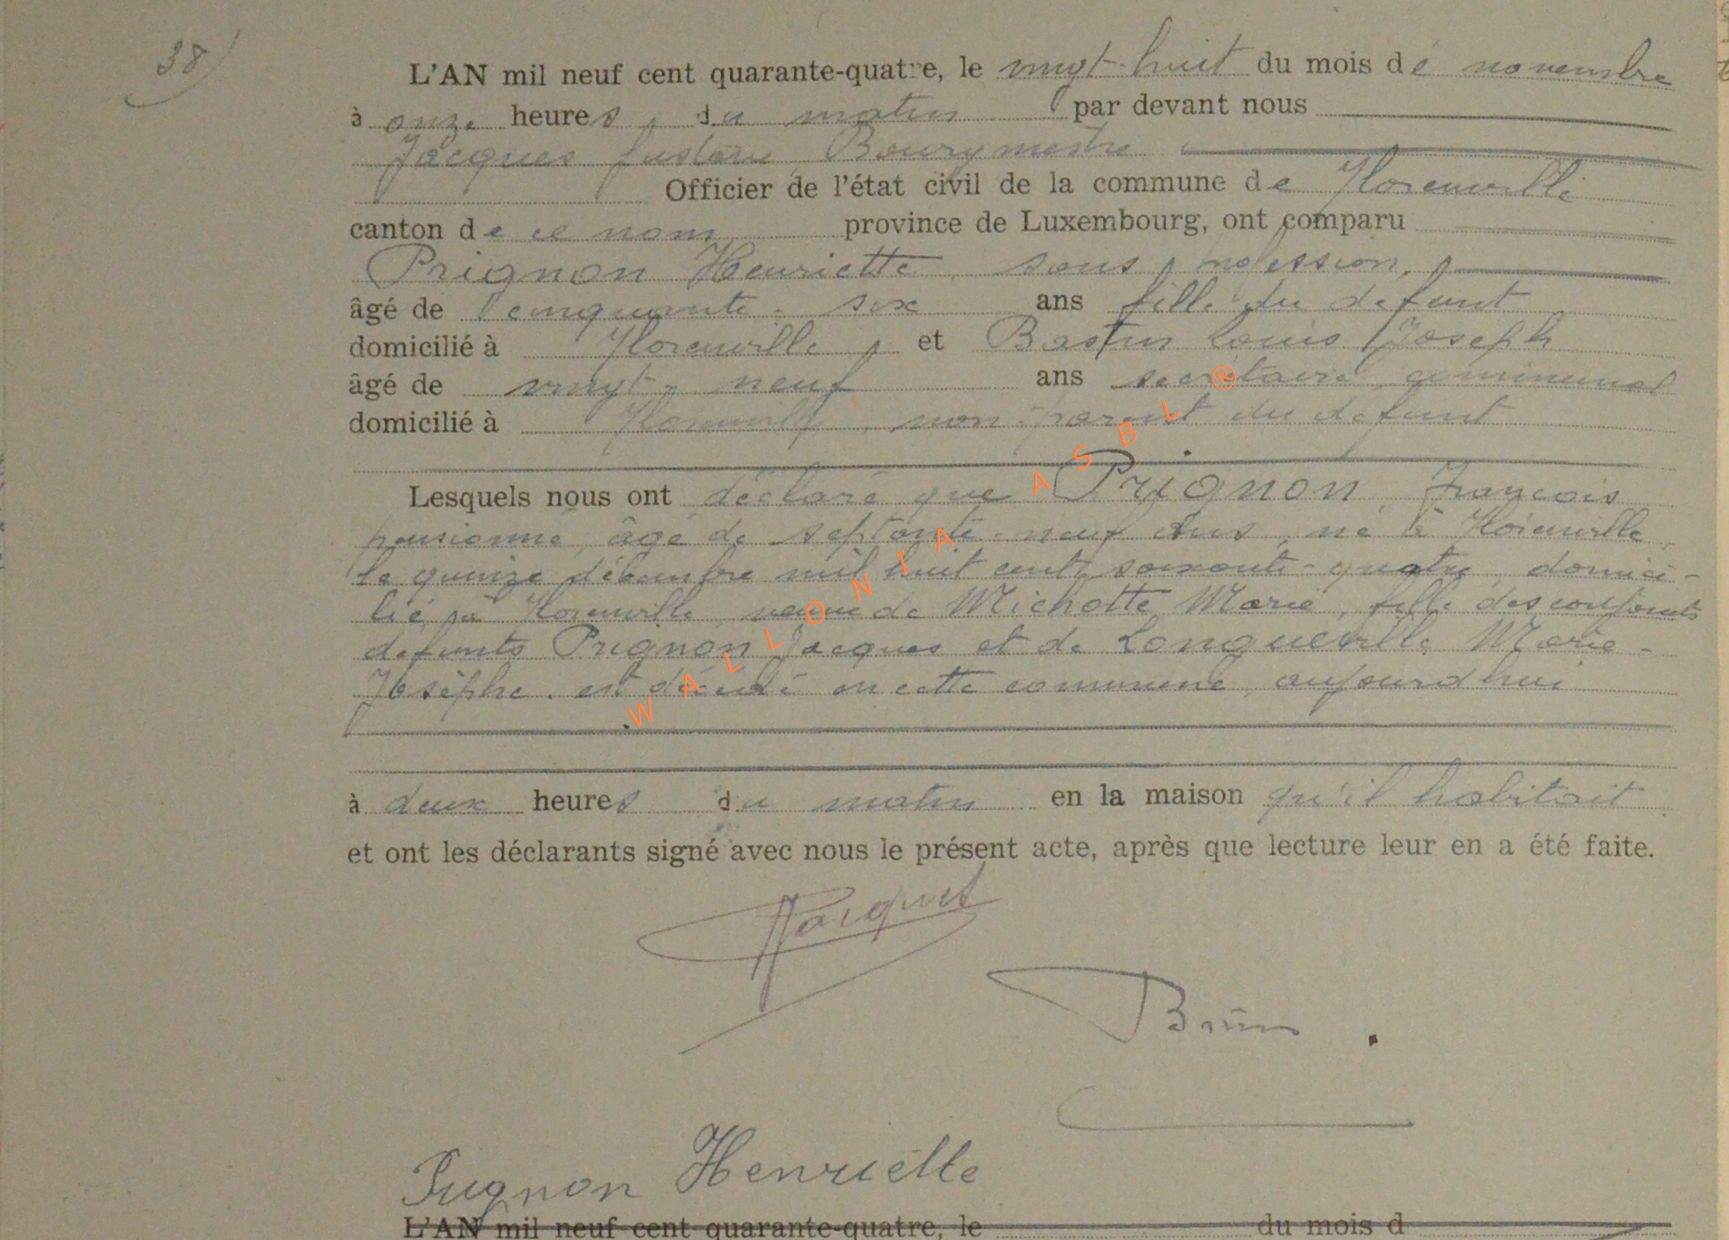 38)
L'AN mil neuf cent quarante-quatre, le vingt-huit du mois de novembre
à onze heures, du matin par devant nous
Jacques Gustave, Bourgmestre
Officier de l'état civil de la commune de Florenville
canton de ce nom province de Luxembourg, ont comparu
Prignon Henriette, sans profession,
âgé de cinquante-six ans fille du defunt
domicilié à Florenville, et Bastin Louis Joseph
âgé de vingt-neuf ans secrétaire communal
domicilié à Florenville, non-parent du defunt
Lesquels nous ont déclaré que Prignon François
pensionné, âgé de septante-neuf ans, né à Florenville,
le quinze décembre mil huit cent soixante-quatre, domici-
lié à Florenville, de Michotte Marie, fille des
defunts Prignon Jacques et de Longueville Marie-
Josèphe, est décédé en cette commune, aujourd'hui
à deux heures du matin en la maison qu'il habitait
et ont les déclarants signé avec nous le présent acte, après que lecture leur en a été faite.
Prignon Henriette
L'AN mil neuf cent quarante-quatre, le du mois d
WALLONIA ASBL ®